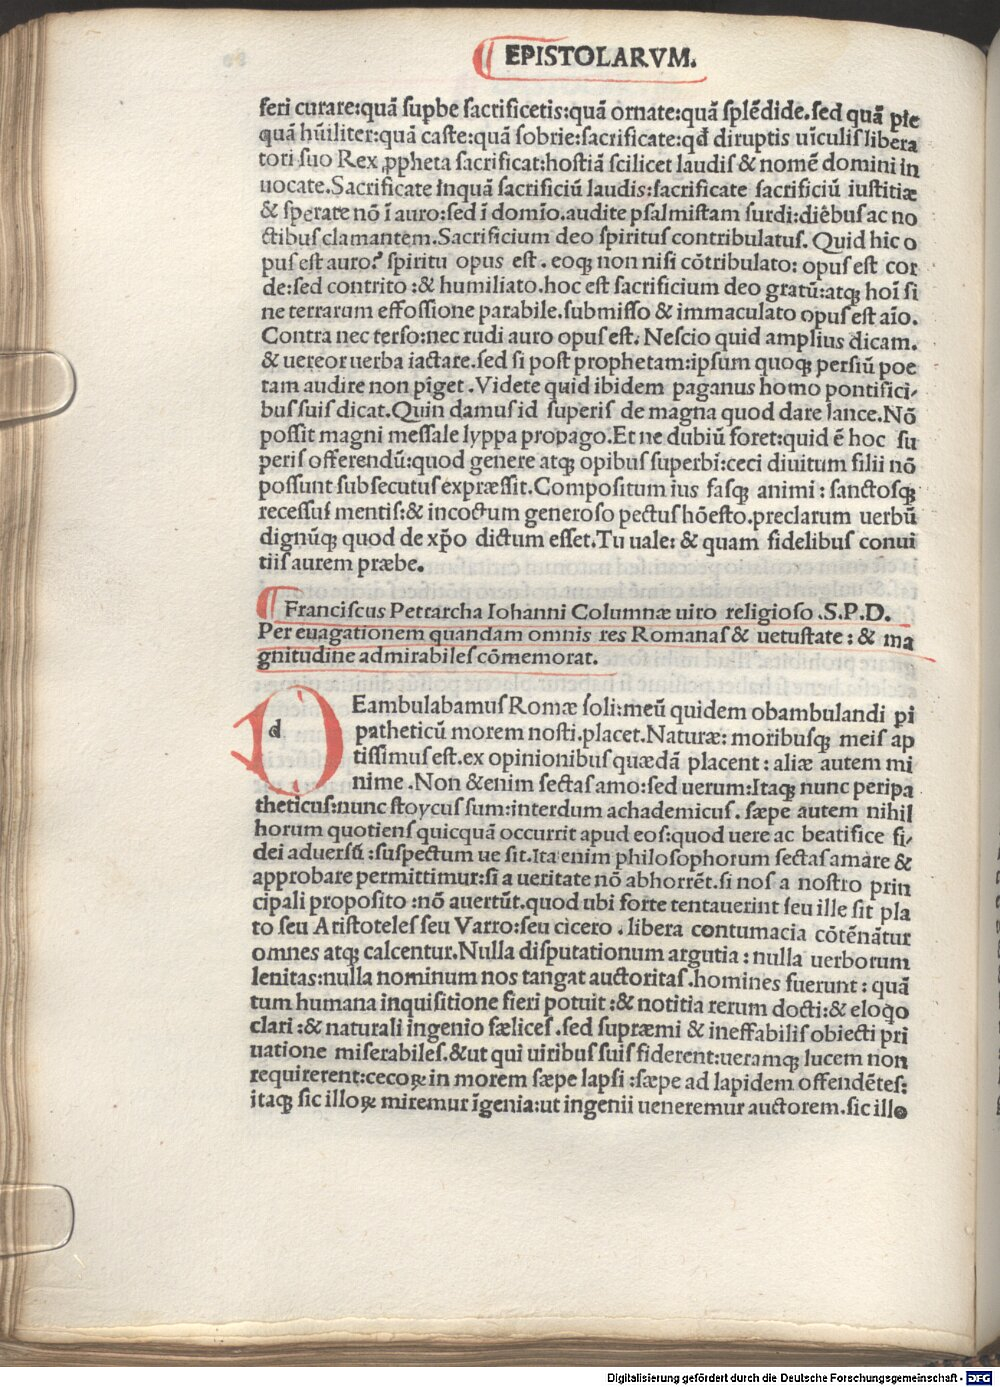 EPISTOLARVM.
feri curare:quã ſuꝑbe ſacrificetis:quã ornate:quã ſplẽdide.ſed quã pie
quã hũiliter:quã caſte:quã ſobrie:ſacrificate:qđ diruptis uĩculiſ libera
tori ſuo Rex ꝓpheta ſacrificat:hoſtiã ſcilicet laudiſ & nomẽ domini in
uocate.Sacrificate inquã ſacrificiũ laudiſ:ſacrificate ſacrificiũ iuſtitiæ
& ſperate nõ ĩ auro:ſed ĩ domĩo.audite pſalmiſtam ſurdi:diẽbuſ ac no
ctibuſ clamantem.Sacrificium deo ſpirituſ contribulatuſ. Quid hic o
puſ eſt auro? ſpiritu opus eſt. eoqꝫ non niſi cõtribulato: opuſ eſt cor
de:ſed contrito :& humiliato.hoc eſt ſacrificium deo gratũ:atqꝫ hoĩ ſi
ne terrarum effoſſione parabile.ſubmiſſo & immaculato opuſ eſt aĩo.
Contra nec terſo:nec rudi auro opuſ eſt. Neſcio quid amplius dicam.
& uereor uerba iactare.ſed ſi poſt prophetam:ipſum quoqꝫ perſiũ poe
tam audire non piget .Videte quid ibidem paganus homo pontifici-
buſ ſuiſ dicat.Quin damuſ id ſuperiſ de magna quod dare lance.Nõ
poſſit magni meſſale lyppa propago.Et ne dubiũ foret:quid ẽ hoc ſu
periſ offerendũ:quod genere atqꝫ opibuſ ſuperbi:ceci diuitum filii nõ
poſſunt ſubſecutuſ expræſſit.Compoſitum ius faſqꝫ animi : ſanctoſqꝫ
receſſuſ mentiſ:& incoctum generoſo pectuſ hõeſto.preclarum uerbũ
dignũqꝫ quod de xp̃o dictum eſſet.Tu uale: & quam fidelibuſ conui
tiiſ aurem præbe.
Franciſcus Petrarcha Iohanni Columnæ uiro religioſo .S.P.D.
Per euagationem quandam omnis res Romanaſ & uetuſtate : & ma
gnitudine admirabileſ cõmemorat.
d
Eambulabamuſ Romæ ſoli:meũ quidem obambulandi pi
patheticũ morem noſti.placet.Naturæ: moribuſqꝫ meiſ ap
tiſſimuſ eſt.ex opinionibuſ quædã placent : aliæ autem mi
nime .Non &enim ſectaſ amo:ſed uerum:Itaqꝫ nunc peripa
theticuſ:nunc ſtoycuſ ſum:interdum achademicuſ . ſæpe autem nihil
horum quotienſ quicquã occurrit apud eoſ:quod uere ac beatifice fi-
dei aduerſũ :ſuſpectum ue ſit.Ita enim philoſophorum ſectaſ amare &
approbare permittimur:ſi a ueritate nõ abhorrẽt.ſi noſ a noſtro prin
cipali propoſito :nõ auertũt.quod ubi forte tentauerint ſeu ille ſit pla
to ſeu Ariſtoteleſ ſeu Varro:ſeu cicero . libera contumacia cõtẽnãtur
omnes atqꝫ calcentur.Nulla diſputationum argutia : nulla uerborum
lenitas:nulla nominum nos tangat auctoritaſ .homines fuerunt : quã
tum humana inquiſitione fieri potuit :& notitia rerum docti:& eloq̃o
clari :& naturali ingenio fæliceſ .ſed ſupræmi & ineffabiliſ obiecti pri
uatione miſerabileſ.&ut qui uiribuſ ſuiſ fiderent:ueramqꝫ lucem non
requirerent:cecoꝝ in morem ſæpe lapſi :ſæpe ad lapidem offendẽteſ:
itaqꝫ ſic illoꝝ miremur ĩgenia:ut ingenii ueneremur auctorem.ſic illo
Digitalisierung gefördert durch die Deutsche Forschungsgemeinschaft - DFG